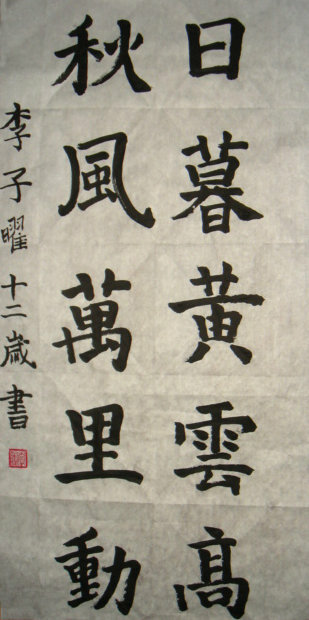 日暮黃雲高
秋風萬里動
李子曜十二歲書